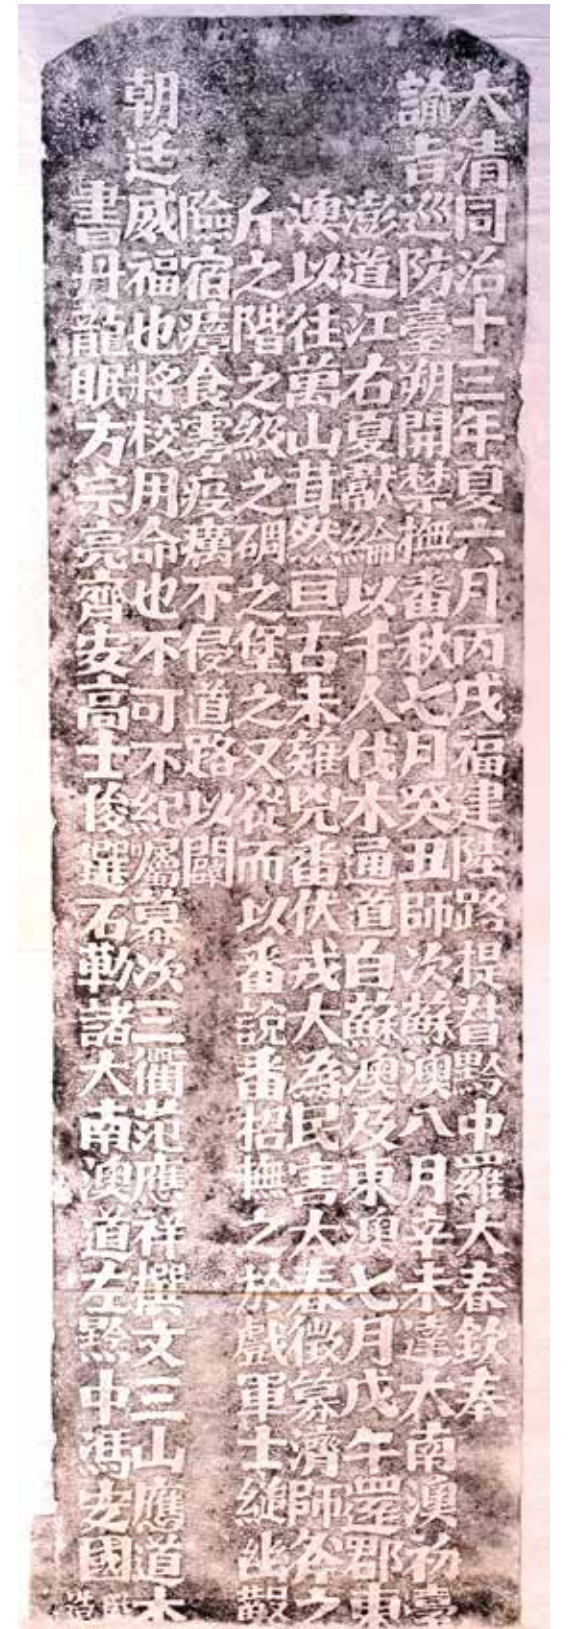 大清同治十三年夏六月丙戌福建陸路提督黔中羅大春欽奉
諭旨巡防臺朔開禁撫番秋七月癸丑師次蘇澳八月辛未達大南澳初臺
澎道江右夏獻綸以千人伐木通道自蘇澳及東澳七月戊午還郡東
澳以往萬山茸然亘古未薙兇番伏戎大為民害大春徵募濟師斧之
斤之階之級之碉之堡之又從而以番說番招撫之於戲軍士縋幽鑿
險宿瘴食霧疫癘不侵道路以闢
朝廷威福也將校用命也不可不紀屬幕次三衢范應祥撰文三山應道本
書丹龍眠方宗亮齊安高士俊選石勒諸大南澳道左黔中馮安國監造